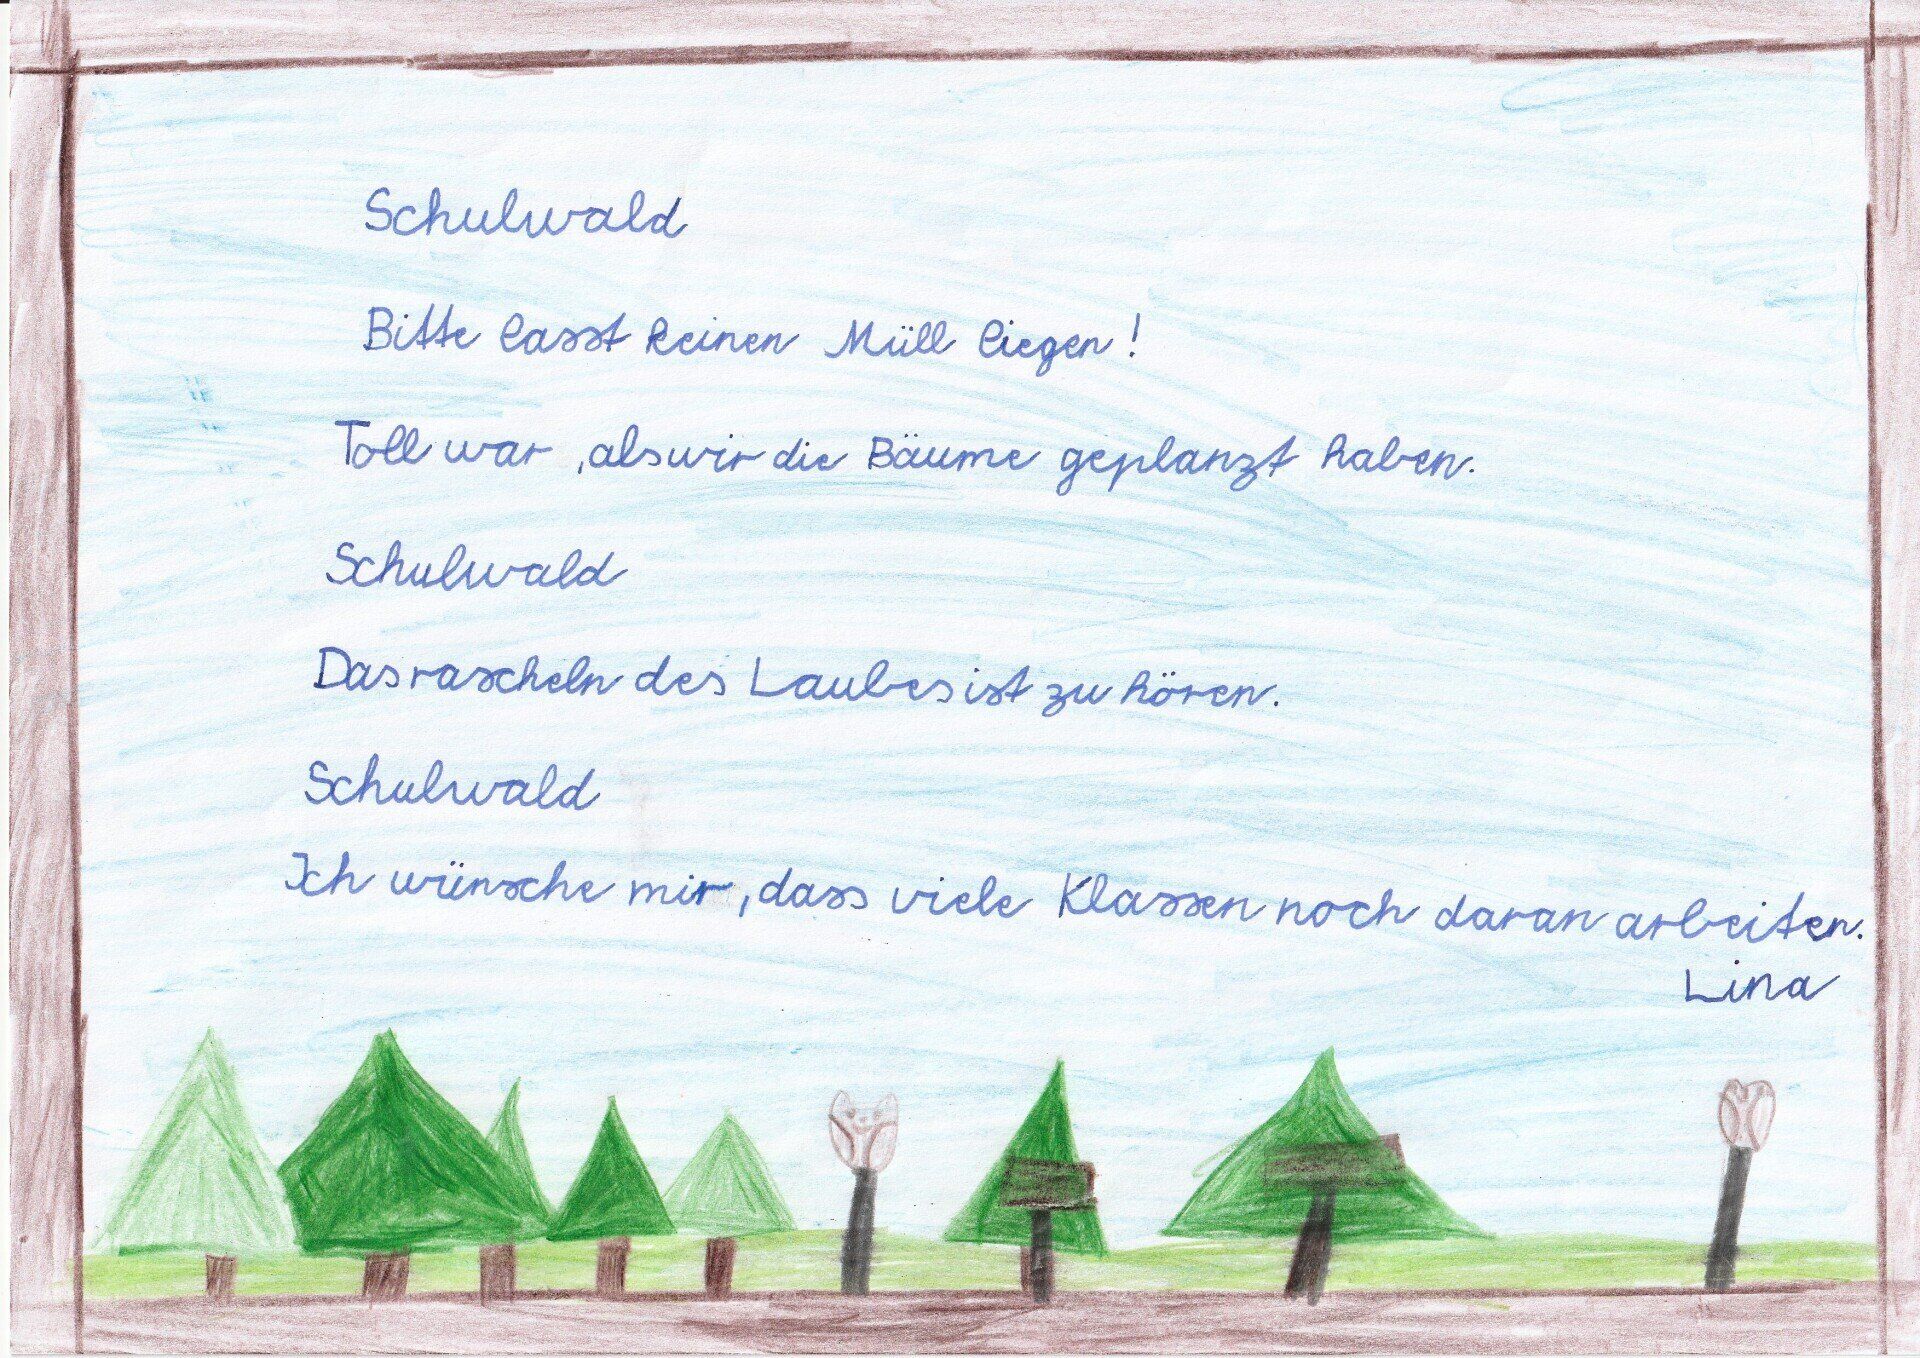 Schulwald
Bitte lasst keinen Müll liegen!
Toll war, als wir die Bäume geplanzt haben.
Schulwald
Das rascheln des Laubes ist zu hören.
Schulwald
Ich wünsche mir, dass viele Klassen noch daran arbeiten.
Lina